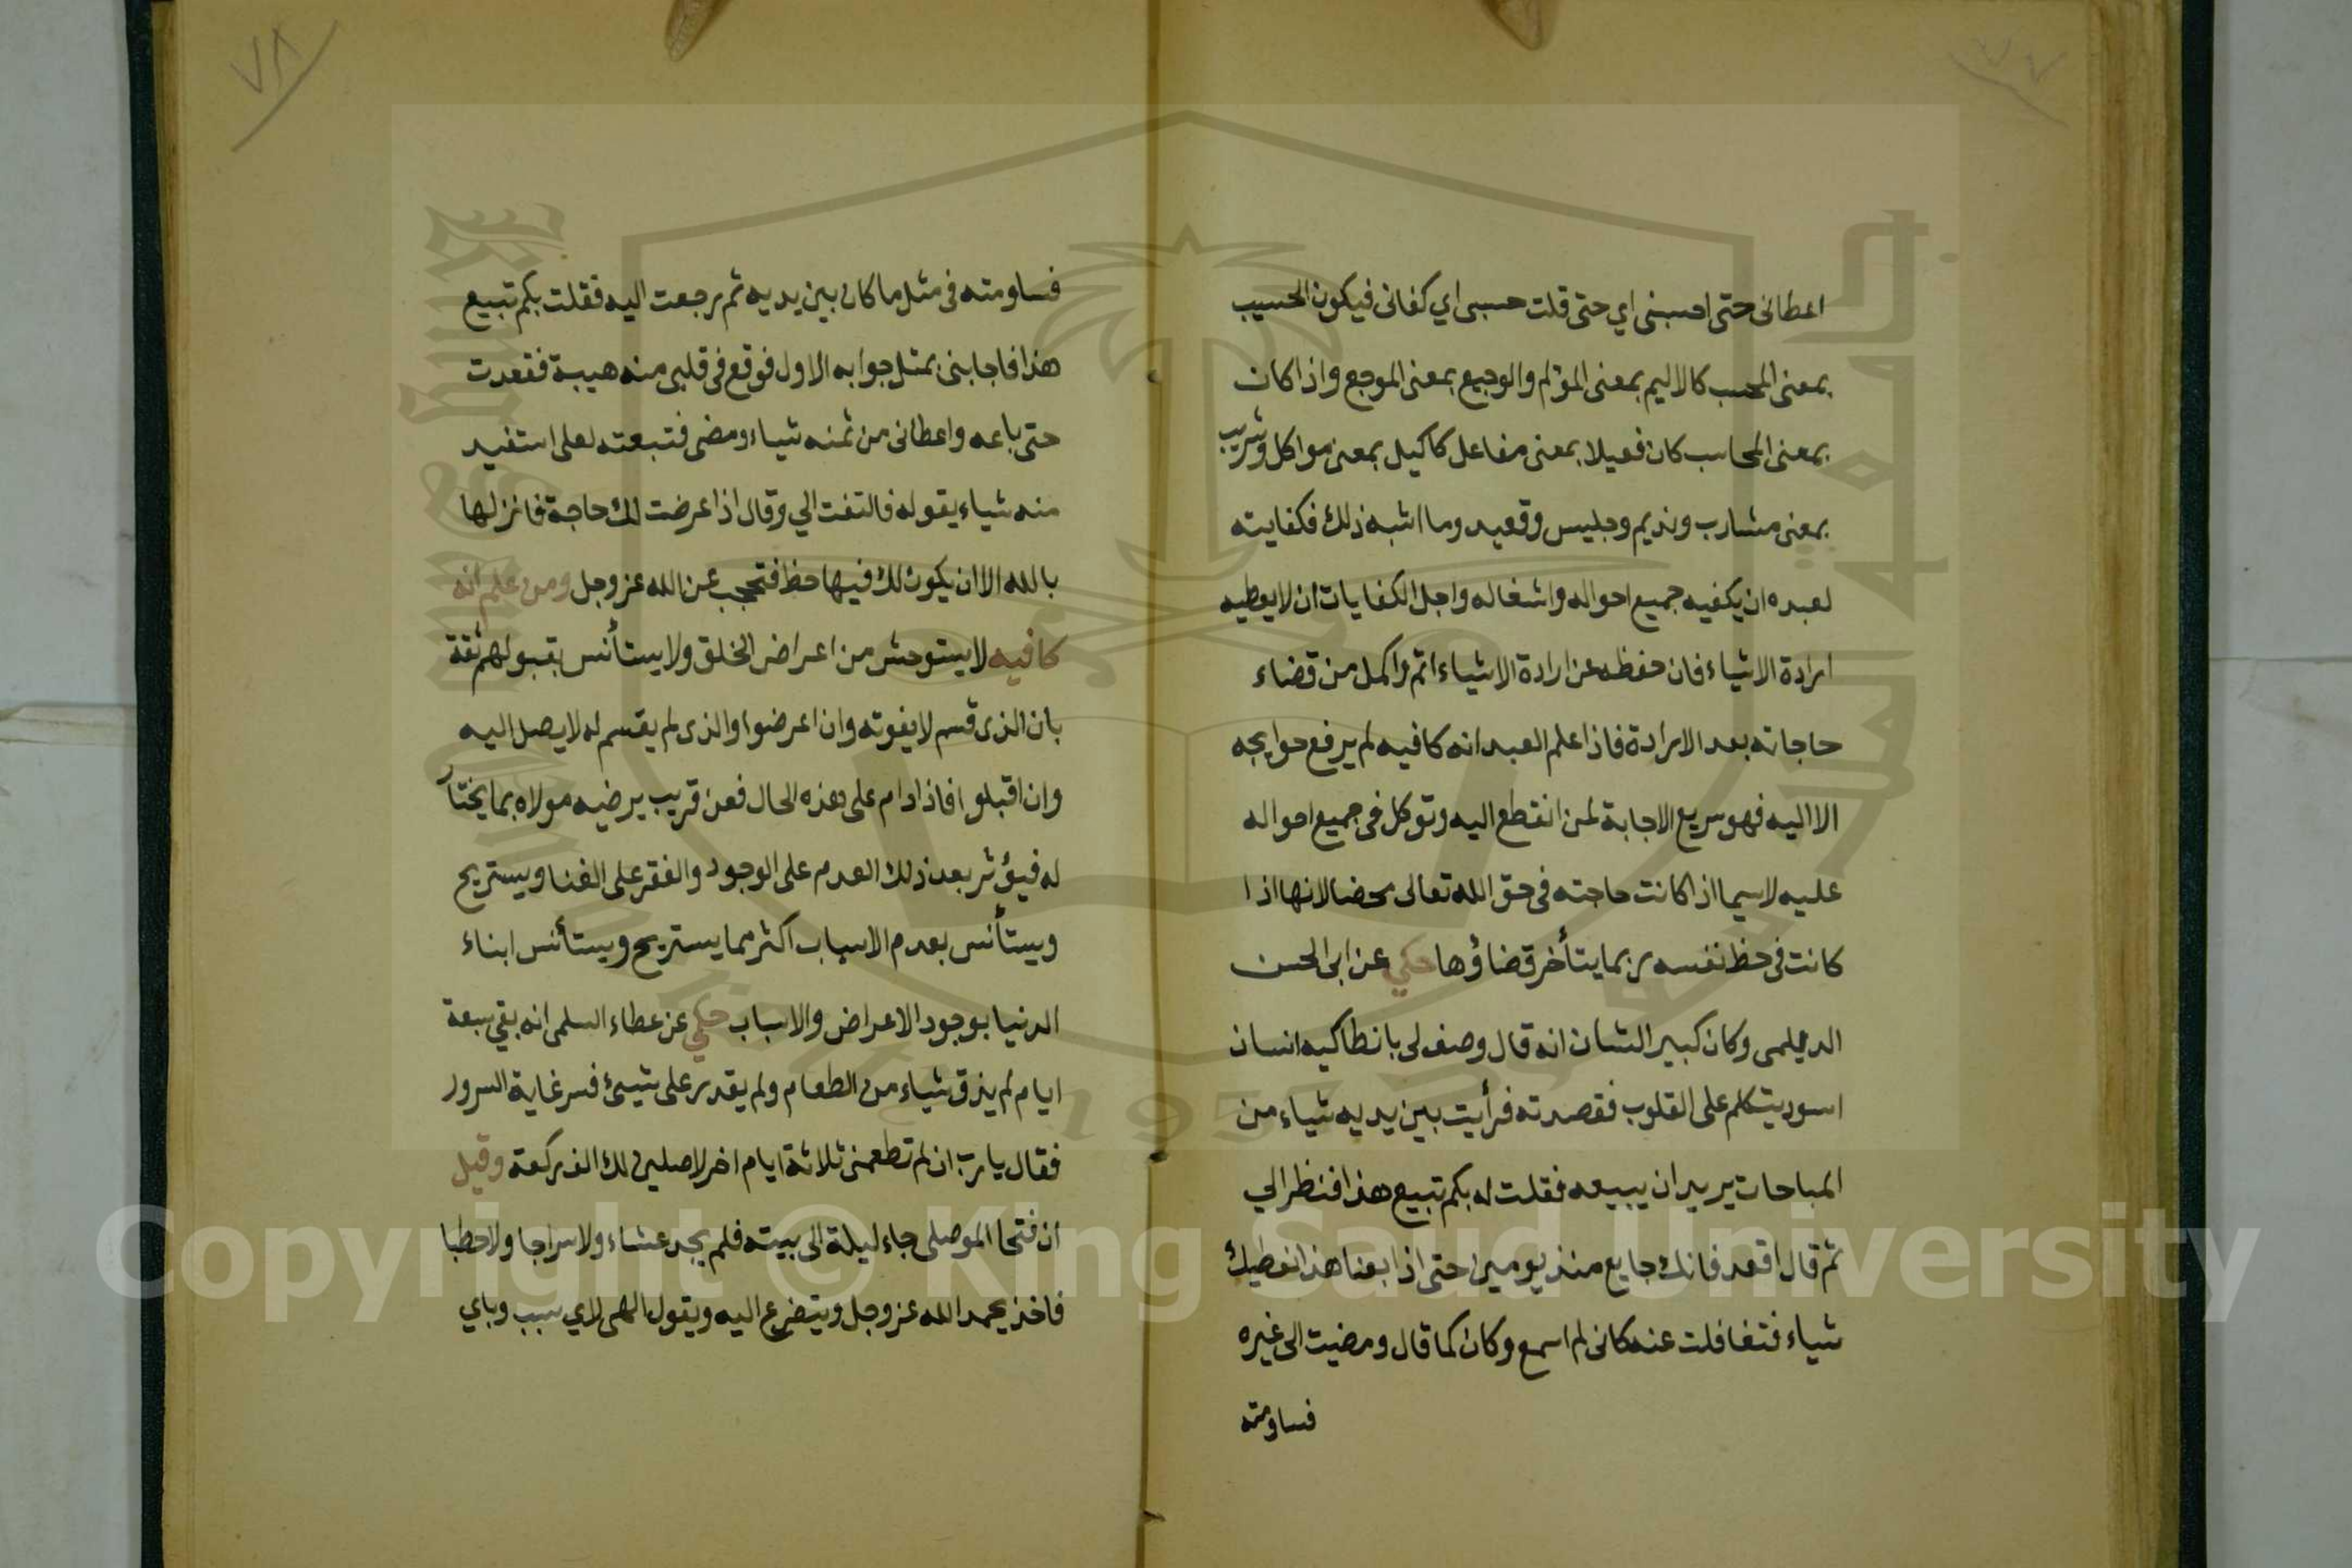 ٧٧
اعطانى حتى احسبنى اي حتى قلت حسبى اي كفانى فيكون الحسيب
بمعنى المحسب كالاليم بمعنى المؤلم والوجيع بمعنى الموجع واذا كان
بمعنى المحاسب كان فعيلا بمعنى مفاعل كاكيل بمعنى مواكل وشريب
بمعنى مشارب ونديم وجليس وقعيد وما اشبه ذلك فكفايته
لعبده ان يكفيه جميع احواله واشغاله واجل الكفايات ان لا يعطيه
ارادة الاشياء فان حفظه عن ارادة الاشياء اتم واكمل من قضاء
حاجاته بعد الارادة فاذا علم العبد انه كافيه لم يرفع حوايجه
الا اليه فهو سريع الاجابة لمن انقطع اليه وتوكل فى جميع احواله
عليه لاسيما اذا كانت حاجته فى حق الله تعالى محضا لانها اذا
كانت فى حظ نفسه ربما يتأخر قضاؤها حكي عن ابى الحسن
الديلمى وكان كبير الشان انه قال وصف لى بانطاكيه انسان
اسود يتكلم على القلوب فقصدته فرأيت بين يديه شياء من
المباحات يريد ان يبيعه فقلت له بكم تبيع هذا فنظر الي
ثم قال اقعد فانك جايع منذ يومين حتى اذا بعنا هذا نعطيك
شياء فتغافلت عنه كانى لم اسمع وكان كما قال ومضيت الى غيره
فساومته
٧٨
فساومته فى مثل ما كان بين يديه ثم رجعت اليه فقلت بكم تبيع
هذا فاجابنى بمثل جوابه الاول فوقع فى قلبى منه هيبة فقعدت
حتى باعه واعطانى من ثمنه شياء ومضى فتبعته لعلى استفيد
منه شياء يقوله فالتفت الي وقال اذا عرضت لك حاجة فانزلها
بالله الا ان يكون لك فيها حظ فتحجب عن الله عز وجل ومن علم انه
كافيه لا يستوحش من اعراض الخلق ولا يستأنس بقبولهم ثقة
بان الذى قسم لا يفوته وان اعرضوا والذى لم يقسم له لا يصل اليه
وان اقبلوا فاذا دام على هذه الحال فعن قريب يرضيه مولاه بما يختار
له فيؤثر بعد ذلك العدم على الوجود والفقر على الغنا ويستريح
ويستأنس بعدم الاسباب اكثر مما يستريح ويستأنس ابناء
الدنيا بوجود الاعراض والاسباب حكي عن عطاء السلمى انه بقي سبعة
ايام لم يذق شياء من الطعام ولم يقدر على شيئ فسر غاية السرور
فقال يا رب ان لم تطعمنى ثلاثة ايام اخر لاصلين لك الف ركعة وقيل
ان فتحا الموصلى جاء ليلة الى بيته فلم يجد عشاء ولا سراجا ولا حطبا
فاخذ يحمد الله عز وجل ويتضرع اليه ويقول الهى لاي سبب وباي
Copyright © King Saud University